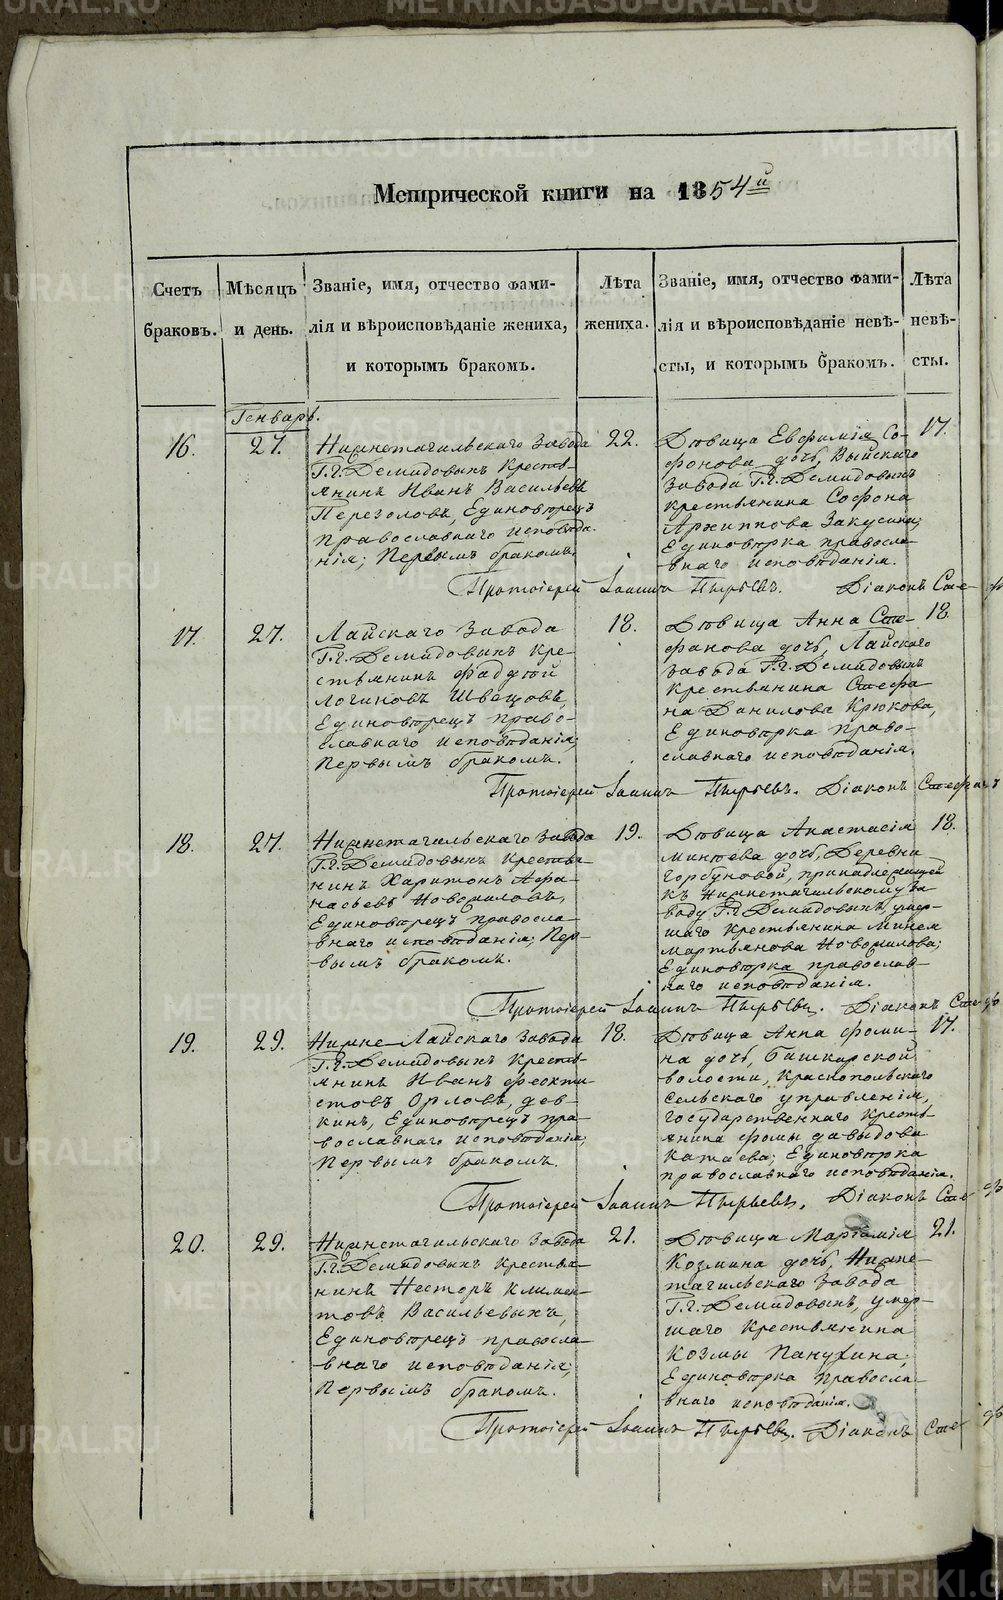 METRIKI.GASO-URAL.RU
Метрической книги на 1854й
Счетъ браковъ.
Мѣсяцъ и день.
Званіе, имя, отчество фами-
лія и вѣроисповѣданіе жениха,
и которымъ бракомъ.
Лѣта жениха.
Званіе, имя, отчество фами-
лія и вѣроисповѣданіе невѣ-
сты, и которымъ бракомъ.
Лѣта невѣ-
сты.
Генварь.
16.
27.
Нижнетагильскаго Завода
Г.г. Демидовыхъ крестья-
янинъ Иванъ Васильевъ
Перезоловъ, Единовѣрецъ
православнаго исповѣда-
нія; Первымъ бракомъ.
22.
Дѣвица Евфимія Со-
фонова дочь, Выйскаго
Завода Г.г. Демидовыхъ
крестьянина Софона
Архиппова Закусина;
Единовѣрка правосла-
внаго исповѣданія.
17.
Протоіерей Іоаннъ Пырьевъ. Діаконъ Сте
17.
27.
Лайскаго Завода
Г.г. Демидовыхъ кре-
стьянинъ Фаддей
Логиновъ Швецовъ,
Единовѣрецъ право-
славнаго исповѣданія;
Первымъ бракомъ.
18.
Дѣвица Анна Сте-
фанова дочь, Лайскаго
завода Г.г. Демидовыхъ
крестьянина Стефа-
на Данилова Крюкова,
Единовѣрка право-
славнаго исповѣданія.
18.
Протоіерей Іоаннъ Пырьевъ. Діаконъ Стефанъ
18.
27.
Нижнетагильскаго завода
Г.г. Демидовыхъ крестья-
нинъ Харитонъ Афа-
насьевъ Новожиловъ,
Единовѣрецъ правосла-
внаго исповѣданія; Пер-
вымъ бракомъ.
19.
Дѣвица Анастасія
Минѣева дочь, Деревни
Горбуновой, принадлежащей
къ Нижнетагильскому За-
воду Г.г. Демидовыхъ, умер-
шаго крестьянина Минея
Мартьянова Новожилова;
Единовѣрка православ-
наго исповѣданія.
18.
Протоіерей Іоаннъ Пырьевъ. Діаконъ Стеф
19.
29.
Нижне-Лайскаго Завода
Г.г. Демидовыхъ крестья-
янинъ Иванъ Феокти-
стовъ Орловъ, дев-
кинъ, Единовѣрецъ пра-
вославнаго исповѣданія;
Первымъ бракомъ.
18.
Дѣвица Анна Фоми-
на дочь, Башкарской
волости, Краснопольскаго
Сельскаго управленія,
государственнаго кресть-
янина Фомы Давыдова
Катаева; Единовѣрка
православнаго исповѣданія.
17.
Протоіерей Іоаннъ Пырьевъ, Діаконъ Сте
20.
29.
Нижнетагильскаго Завода
Г.г. Демидовыхъ крестья-
нинъ Несторъ Климен-
товъ Васильевыхъ,
Единовѣрецъ правосла-
внаго исповѣданія;
Первымъ бракомъ.
21.
Дѣвица Маріамія
Козмина дочь, Нижне-
тагильскаго Завода
Г.г. Демидовыхъ, умер-
шаго крестьянина
Козмы Панухина;
Единовѣрка правосла-
внаго исповѣданія.
21.
Протоіерей Іоаннъ Пырьевъ. Діаконъ Сте